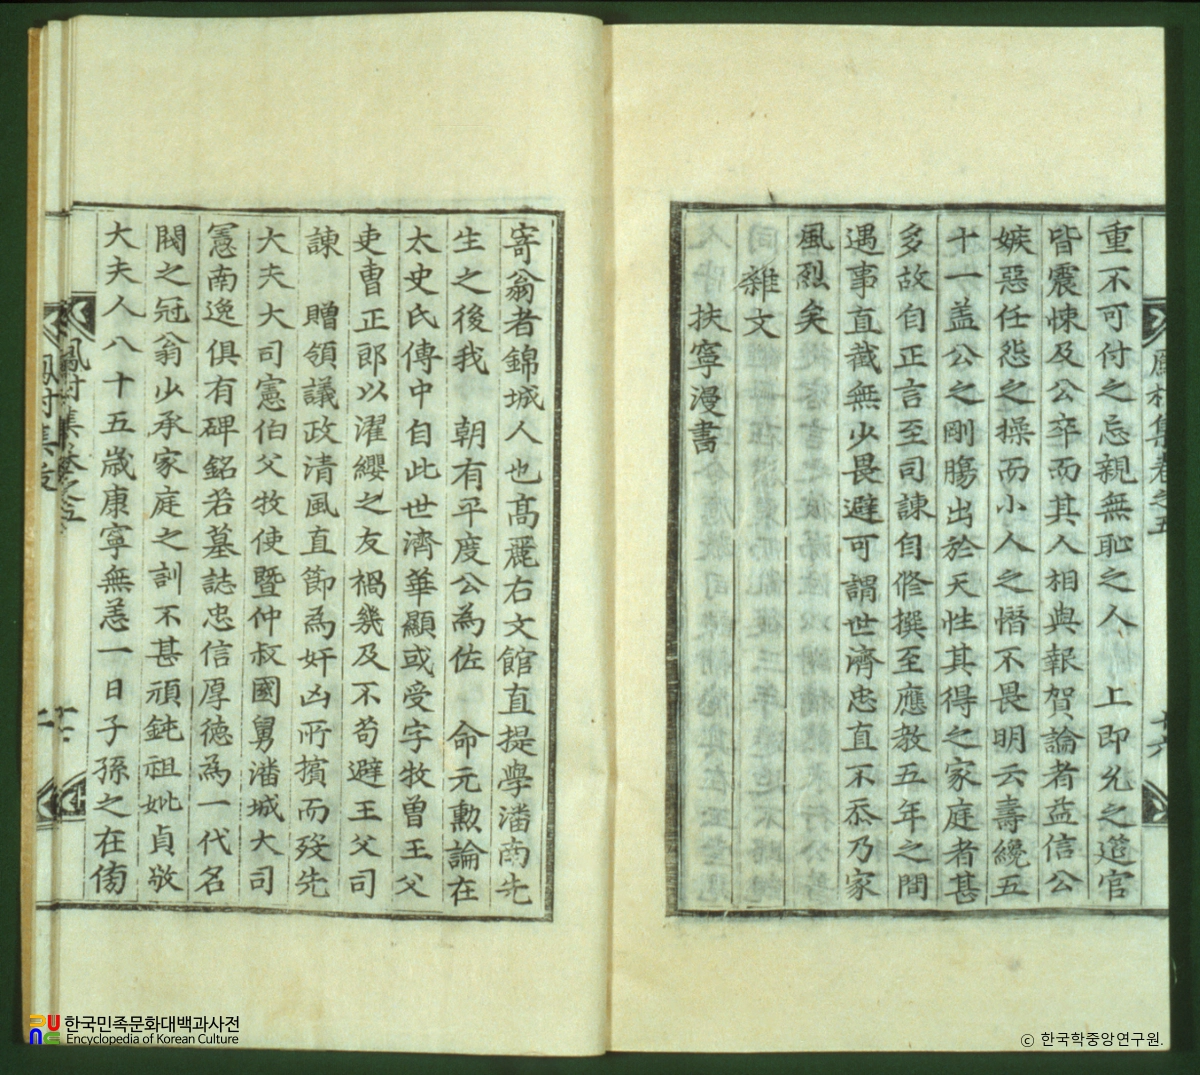 重不可付之忘親無恥之人 上即允之邇官
皆震悚及公卒而其人相與報賀論者益信公
嫉惡任怨之操而小人之憯不畏明云壽纔五
十一盖公之剛膓出於天性其得之家庭者甚
多故自正言至司諫自修撰至應教五年之間
遇事直截無少畏避可謂世濟忠直不忝乃家
風烈矣
雜文
扶寧漫書
鳳村集卷之五
十六
寄翁者錦城人也高麗右文館直提學潘南先
生之後我 朝有平度公為佐 命元勲論在
太史氏傳中自此世濟華顯或受字牧曾王父
吏曹正郎以濯纓之友禍幾及不苟避王父司
諫 贈領議政清風直節為奸凶所擯而殁先
大夫大司憲伯父牧使暨仲叔國舅潘城大司
憲南逸俱有碑銘若墓誌忠信厚德為一代名
閥之冠翁少承家庭之訓不甚頑鈍祖妣貞敬
大夫人八十五歲康寧無恙一日子孫之在傍
鳳村集卷之五
十七
한국민족문화대백과사전
Encyclopedia of Korean Culture
ⓒ 한국학중앙연구원.